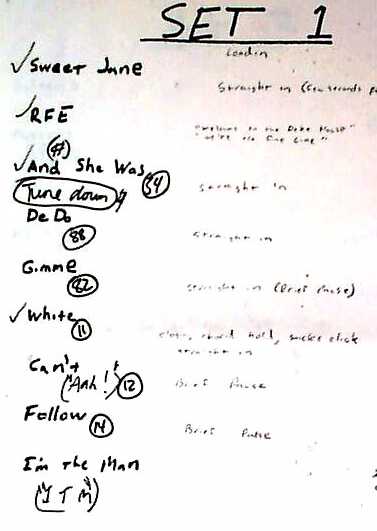 SET 1
London
✓ Sweet Jane
Straight in (few seconds
✓ RFE
"Welcome to the Duke House"
"We're the Fine Line"
(#)
✓ And She Was
54
Straight in
Tune down
De Do
88
Straight in
Gimme
82
Straight in (Brief Pause)
✓ White
11
chord hold, sticks click
Straight in
Can't
("Aah!") 12
Brief Pause
Follow 14
Brief Pause
I'm The Man
("I T M")